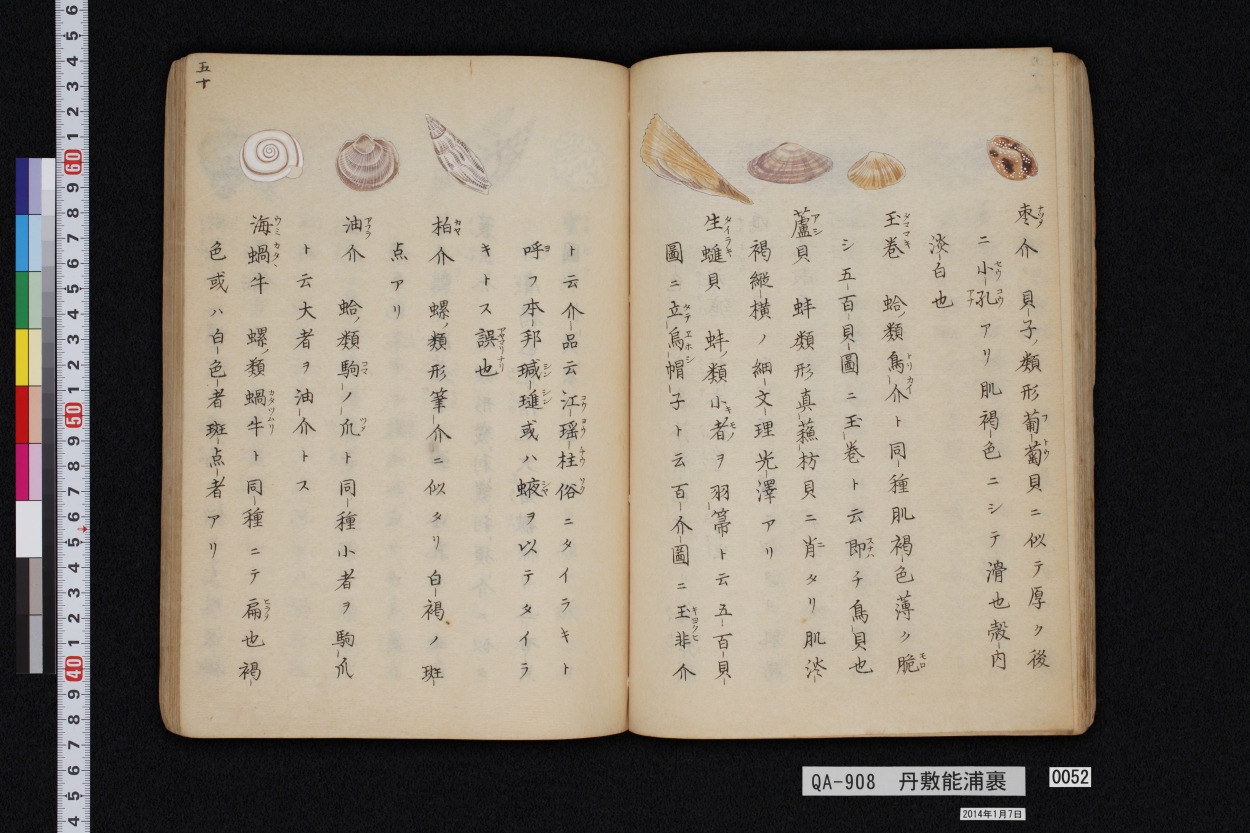 棗介 貝子ノ類形葡萄貝ニ似テ厚ク後
ニ小孔アリ肌褐色ニシテ滑也殻内
淡白也
玉巻 蛤ノ類鳥介ト同種肌褐色薄ク脆
シ五百貝圖ニ玉巻ト云即チ鳥貝也
蘆貝 蚌類形真蘓枋貝ニ肖タリ肌淡
褐縦横ノ細文理光澤アリ
生䗯貝 蚌ノ類小者ヲ羽箒ト云五百貝
圖ニ立烏帽子ト云百介圖ニ玉非介
ト云介品云江瑶柱俗ニタイラキト
呼フ本邦瑊𤧚或ハ蛺ヲ以テタイラ
キトス誤也
柏介 螺ノ類形筆介ニ似タリ白褐ノ斑
点アリ
油介 蛤ノ類駒ノ爪ト同種小者ヲ駒爪
ト云大者ヲ油介トス
海蝸牛 螺ノ類蝸牛ト同種ニテ扁也褐
色或ハ白色者斑点者アリ
五十
QA-908 丹敷能浦裹
0052
2014年1月7日